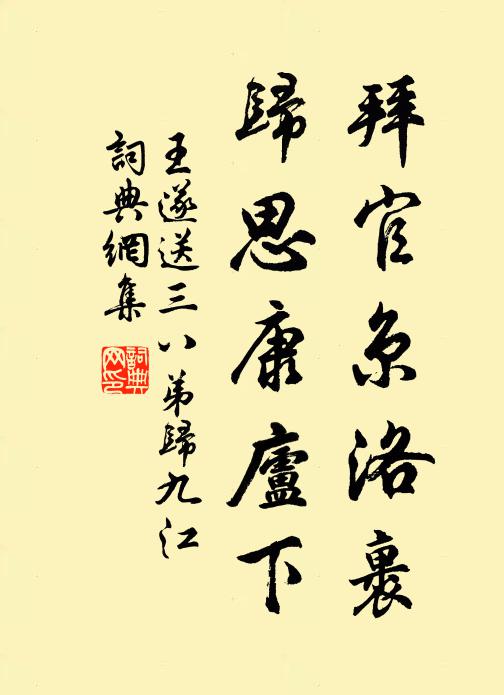 拜官京洛裏
歸思康廬下
王遂送三八弟歸九江
詞典網集
詞典网印